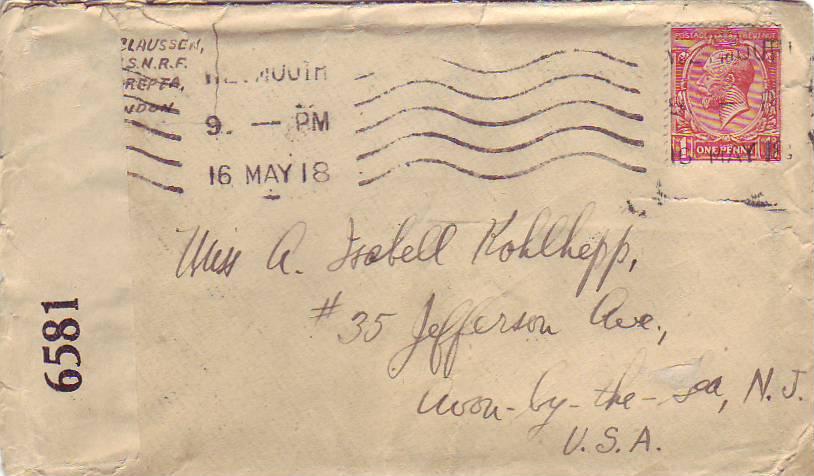 CLAUSSEN,
S.N.R.F.
WEYMOUTH
9. — PM
16 MAY 18
POSTAGE REVENUE
ONE PENNY
MAY 18
Miss A. Isabell Kohlhepp,
#35 Jefferson Ave.,
Avon-by-the-sea, N.J.
U.S.A.
6581